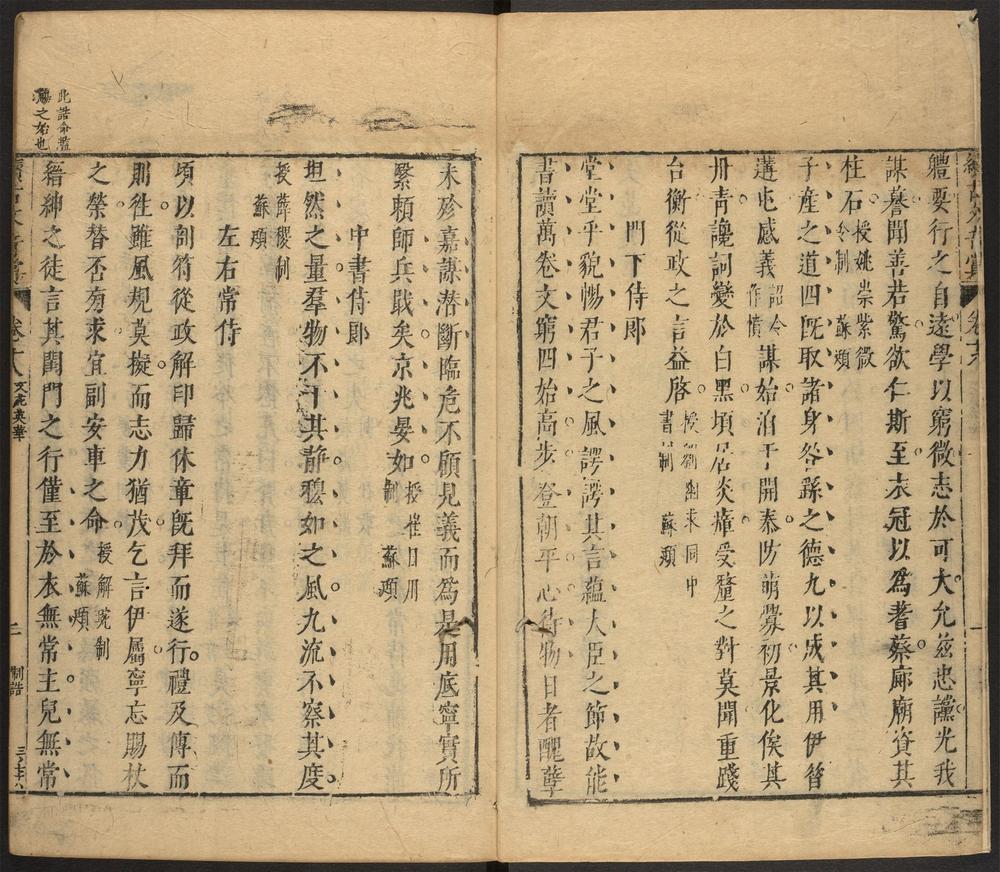 體要行之自遠學以窮微志於可大允茲忠讜光我
謀謩聞善若驚欲仁斯至衣冠以爲耆蔡廊廟資其
柱石授姚崇紫微令制 蘇頲
子產之道四旣取諸身咎繇之德九以成其用伊昔
遘屯感義詔令作憤謀始洎乎開泰防萠彛初景化俟其
丹青讒詞變於白黑頃居炎瘴受釐之對莫聞重踐
台衡從政之言益啓授劉幽求同中書制 蘇頲
門下侍郞
堂堂乎貌惕君子之風諤諤其言蘊大臣之節故能
書讀萬卷文窮四始高步登朝平心待物日者醜孽
未殄嘉謀潛斷臨危不顧見義而爲是用底寧實所
繄賴師兵戢矣京兆晏如授崔日用制 蘇頲
中書侍郞
坦然之量羣物不干其靜穆如之風九流不察其度
授薛稷制 蘇頲
左右常侍
頃以剖符從政解印歸休章旣拜而遂行禮及傳而
則徃雖風規莫擬而志力猶茂乞言伊屬寧忘賜杖
之榮替否攸求宜副安車之命授解琬制 蘇頲
縉紳之徒言其閨門之行僅至於衣無常主兒無常
此誥命濫觴之始也
卷十八 文苑英華
二
制誥